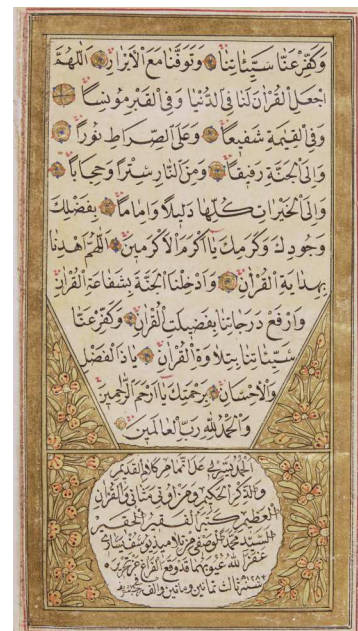 وَكَفِّرْ عَنَّا سَيِّئَاتِنَا وَتَوَفَّنَا مَعَ الْأَبْرَارِ اَللّٰهُمَّ
اجْعَلِ الْقُرْاٰنَ لَنَا فِي الدُّنْيَا وَفِي الْقَبْرِ مُونِسًا
وَفِي الْقِيٰمَةِ شَفِيعًا وَعَلَى الصِّرَاطِ نُورًا
وَاِلَى الْجَنَّةِ رَفِيقًا وَمِنَ النَّارِ سِتْرًا وَحِجَابًا
وَاِلَى الْخَيْرَاتِ كُلِّهَا دَلِيلًا وَاِمَامًا بِفَضْلِكَ
وَجُودِكَ وَكَرَمِكَ يَا اَكْرَمَ الْاَكْرَمِينَ اَللّٰهُمَّ اهْدِنَا
بِهِدَايَةِ الْقُرْاٰنِ وَاَدْخِلْنَا الْجَنَّةَ بِشَفَاعَةِ الْقُرْاٰنِ
وَارْفَعْ دَرَجَاتِنَا بِفَضِيلَتِ الْقُرْاٰنِ وَكَفِّرْ عَنَّا
سَيِّئَاتِنَا بِتِلَاوَةِ الْقُرْاٰنِ يَا ذَا الْفَضْلِ
وَالْاِحْسَانِ بِرَحْمَتِكَ يَا اَرْحَمَ الرَّاحِمِينَ
وَالْحَمْدُ لِلّٰهِ رَبِّ الْعَالَمِينَ
الحمد لله على اتمام كلام القديم
والذكر الحكيم ومن اوتى مثانى والقران
العظيم كتبه الفقير الحقير
السيد محمد وصفى من تلاميذ
غفر الله عيوبهما قد وقع الفراغ عن تحريره
سنة ثمانين ومأتين والف